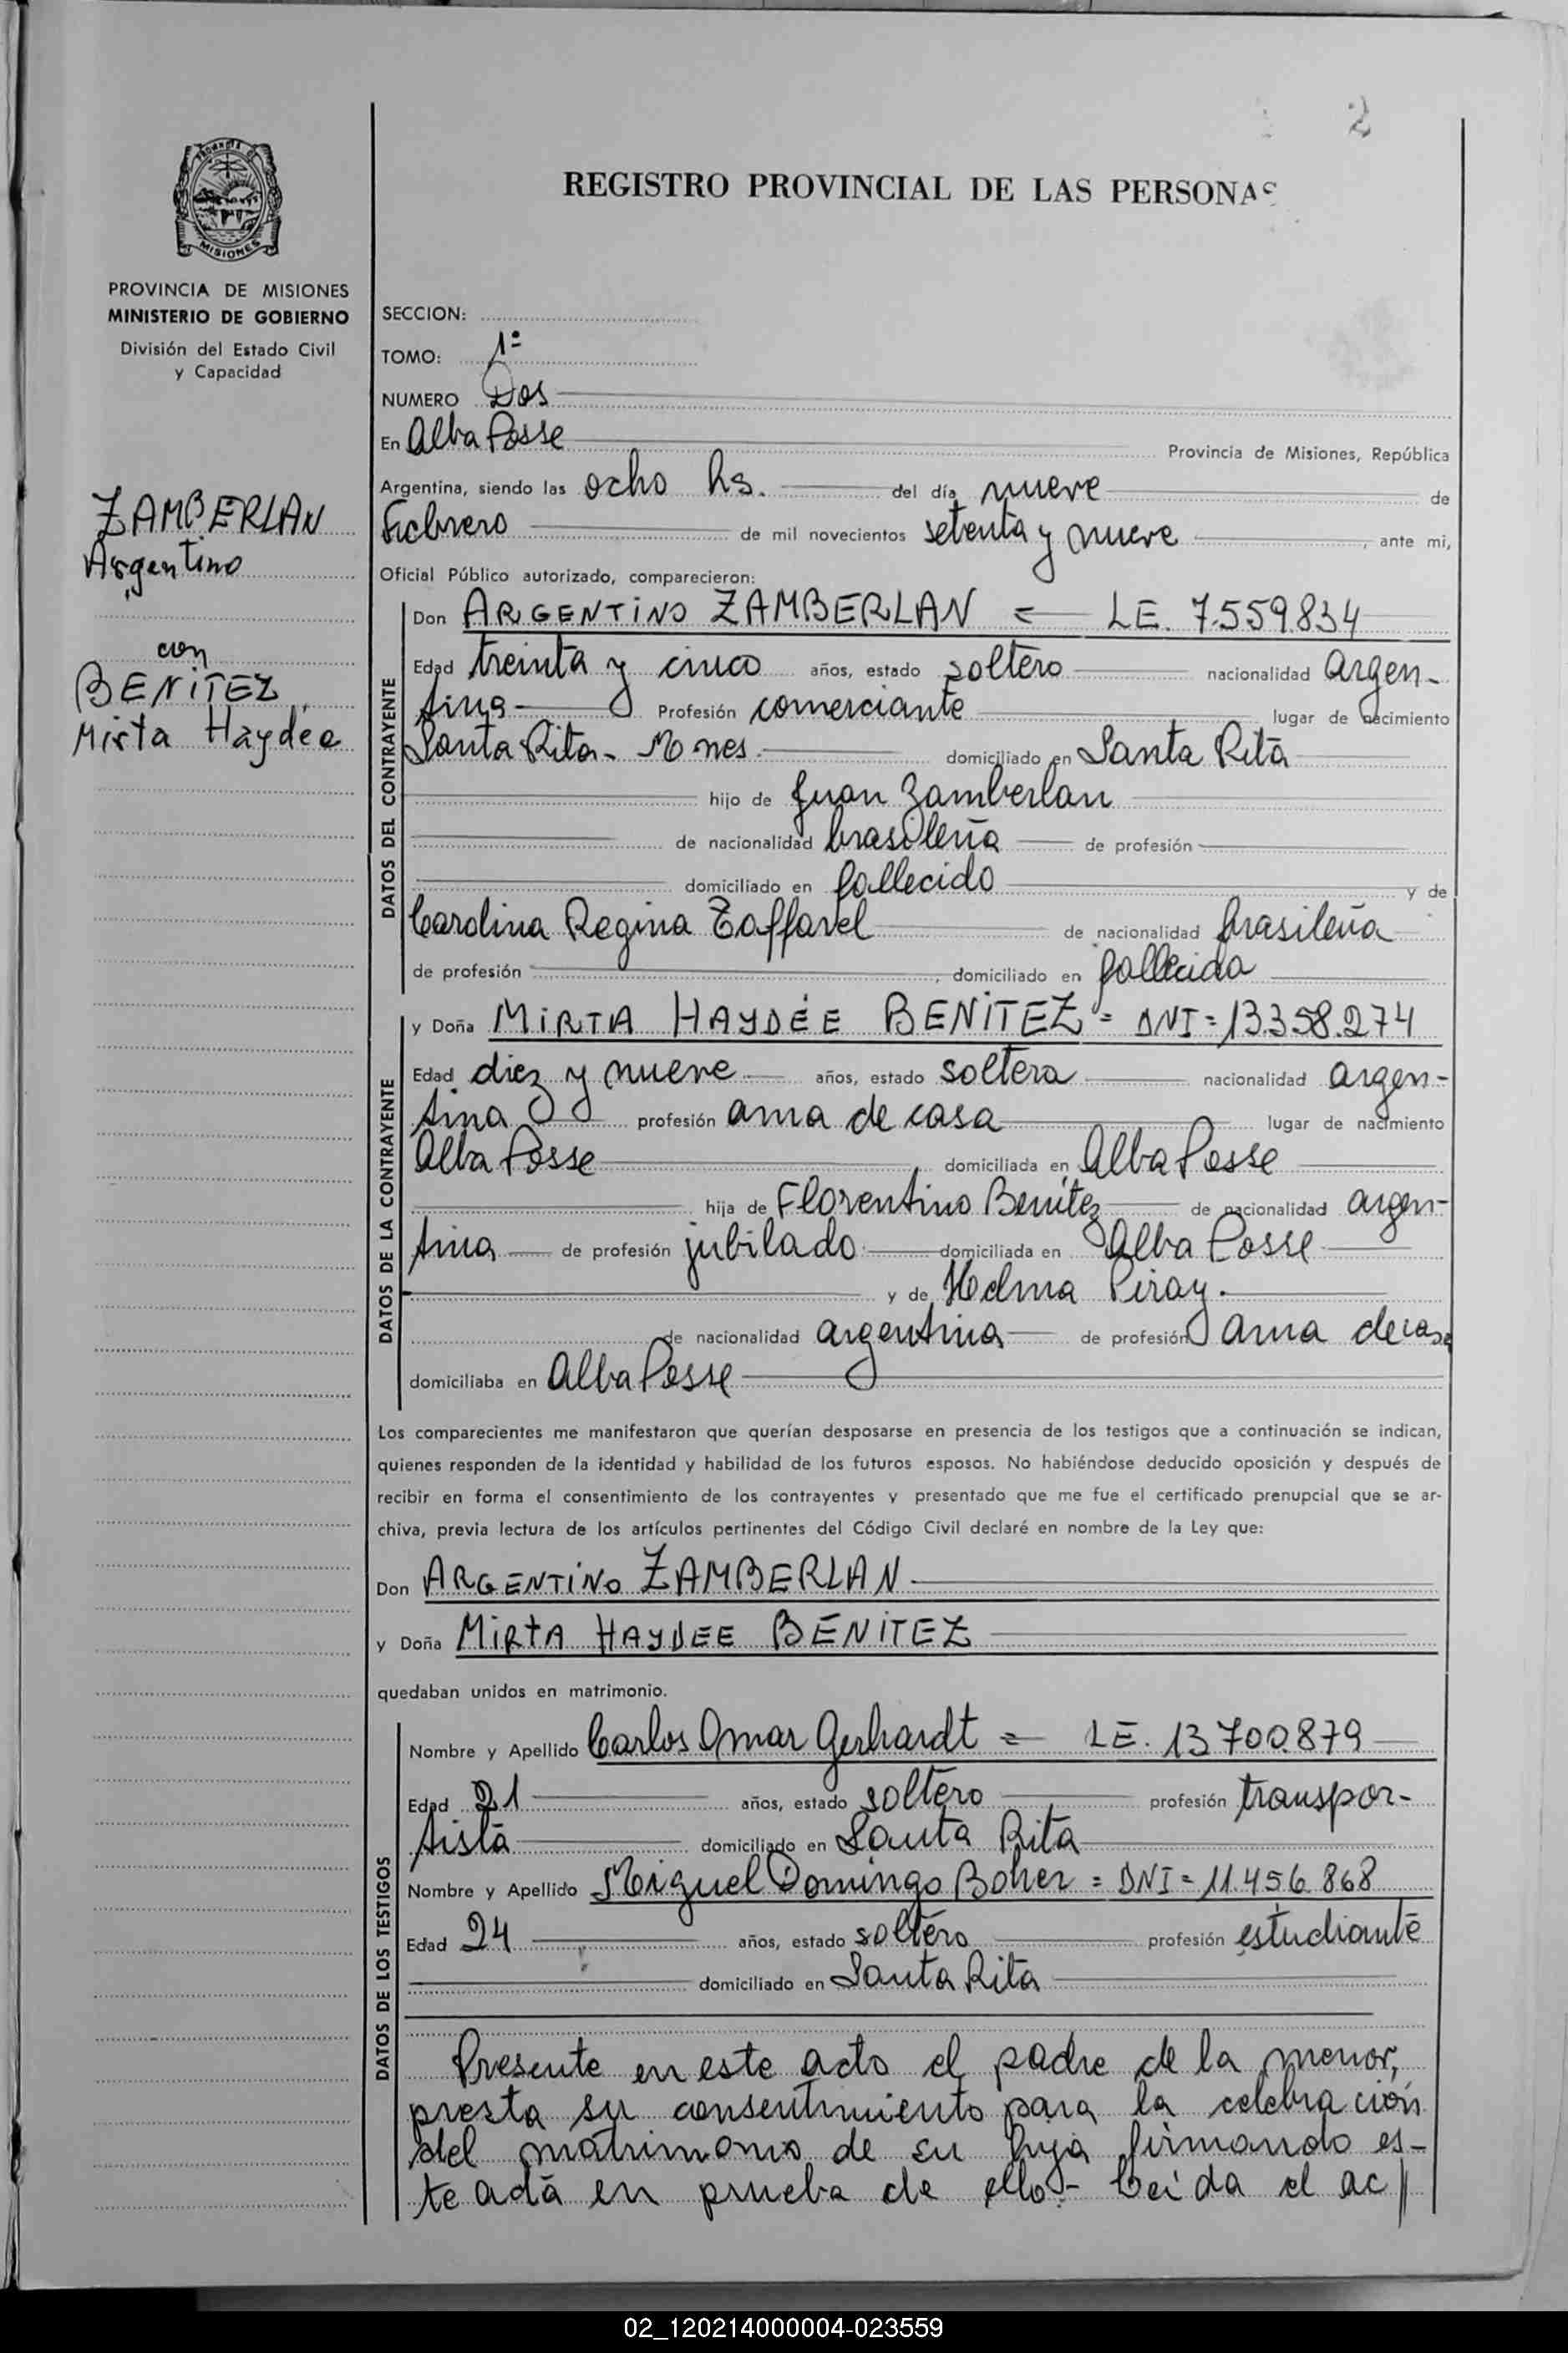 2
REGISTRO PROVINCIAL DE LAS PERSONAS
PROVINCIA DE
MISIONES
PROVINCIA DE MISIONES
MINISTERIO DE GOBIERNO
División del Estado Civil
y Capacidad
ZAMBERLAN
Argentino
con
BENITEZ,
Mirta Haydée
SECCION:
TOMO: 1º
NUMERO Dos
En Alba Posse Provincia de Misiones, República
Argentina, siendo las ocho hs. del día nueve de
Febrero de mil novecientos setenta y nueve, ante mi,
Oficial Público autorizado, comparecieron:
DATOS DEL CONTRAYENTE
Don ARGENTINO ZAMBERLAN = LE. 7.559.834
Edad treinta y cinco años, estado soltero nacionalidad argen-
tina Profesión comerciante lugar de nacimiento
Santa Rita - Mnes. domiciliado en Santa Rita
hijo de Juan Zamberlan
de nacionalidad brasileña de profesión
domiciliado en fallecido y de
Carolina Regina Taffarel de nacionalidad brasileña
de profesión, domiciliado en fallecida
DATOS DE LA CONTRAYENTE
y Doña MIRTA HAYDÉE BENITEZ = DNI = 13.358.274
Edad diez y nueve años, estado soltera nacionalidad argen-
tina profesión ama de casa lugar de nacimiento
Alba Posse domiciliada en Alba Posse
hija de Florentino Benitez de nacionalidad argen-
tina de profesión jubilado domiciliada en Alba Posse
y de Helma Piray.
de nacionalidad argentina de profesión ama de casa
domiciliaba en Alba Posse
Los comparecientes me manifestaron que querían desposarse en presencia de los testigos que a continuación se indican,
quienes responden de la identidad y habilidad de los futuros esposos. No habiéndose deducido oposición y después de
recibir en forma el consentimiento de los contrayentes y presentado que me fue el certificado prenupcial que se ar-
chiva, previa lectura de los artículos pertinentes del Código Civil declaré en nombre de la Ley que:
Don ARGENTINO ZAMBERLAN
y Doña MIRTA HAYDEE BENITEZ
quedaban unidos en matrimonio.
DATOS DE LOS TESTIGOS
Nombre y Apellido Carlos Omar Gerhardt = LE. 13.700.879
Edad 21 años, estado soltero profesión transpor-
tista domiciliado en Santa Rita
Nombre y Apellido Miguel Domingo Boher = DNI = 11.456.868
Edad 24 años, estado soltero profesión estudiante
domiciliado en Santa Rita
Presente en este acto el padre de la menor,
presta su consentimiento para la celebración
del matrimonio de su hija firmando es-
te acta en prueba de ello.- Leida el ac//
02_120214000004-023559